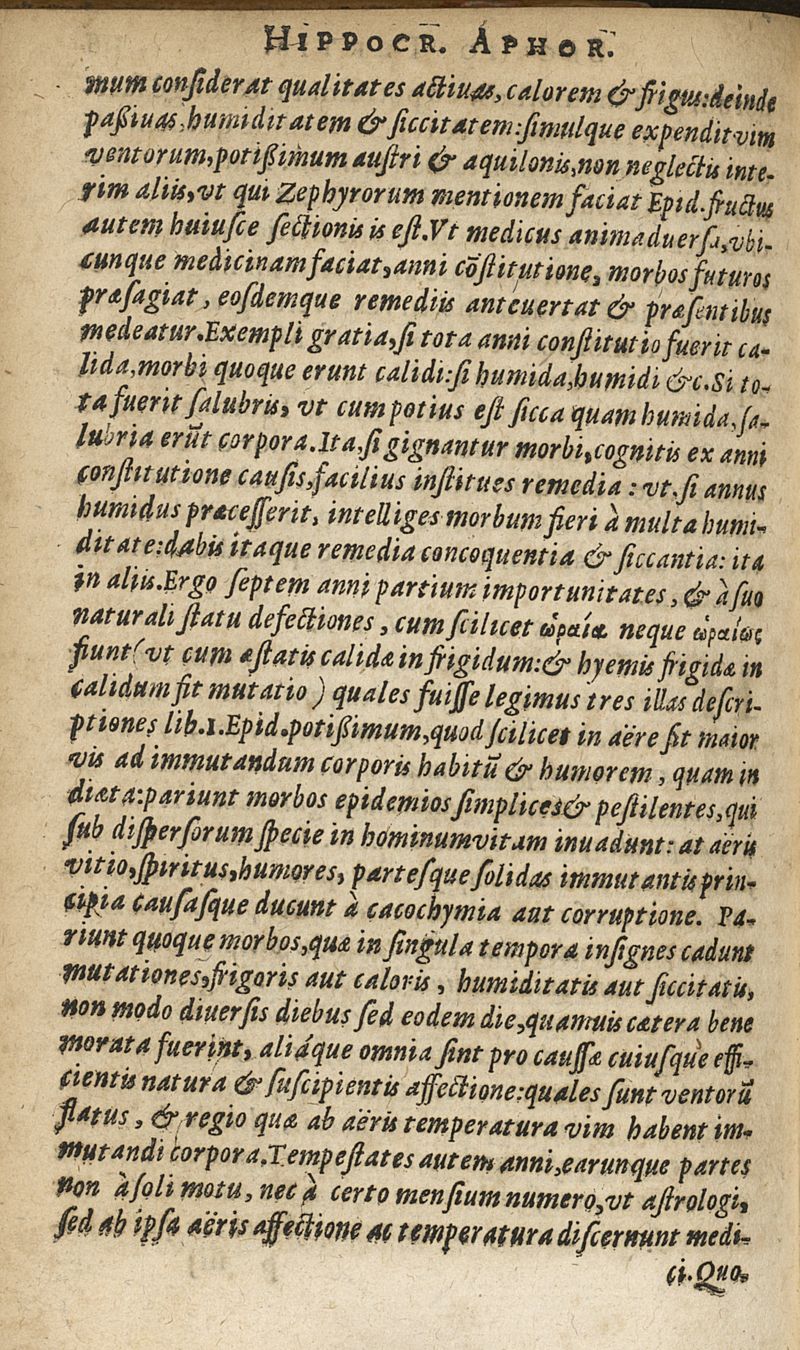 HIPPOCR. APHOR.
mum conſiderat qualitates actiuas, calorem & frigus: deinde
paßiuas, humiditatem & ſiccitatem: ſimulque expendit vim
ventorum, potißimum auſtri & aquilonis, non neglectis inte-
rim aliis, vt qui Zephyrorum mentionem faciat Epid. fructus
autem huiuſce ſectionis is eſt. Vt medicus animaduerſa, vbi-
cunque medicinam faciat, anni cōſtitutione, morbos futuros
præſagiat, eoſdemque remediis anteuertat & præſentibus
medeatur. Exempli gratia, ſi tota anni conſtitutio fuerit ca-
lida, morbi quoque erunt calidi: ſi humida, humidi &c. Si to-
ta fuerit ſalubris, vt cum potius eſt ſicca quam humida, ſa-
lubria erūt corpora. Ita, ſi gignantur morbi, cognitis ex anni
conſtitutione cauſis, facilius inſtitues remedia: vt, ſi annus
humidus præceſſerit, intelliges morbum fieri à multa humi-
ditate: dabis itaque remedia concoquentia & ſiccantia: ita
in aliis. Ergo ſeptem anni partium importunitates, & à ſuo
naturali ſtatu defectiones, cum ſcilicet ὡραία neque ὡραίως
fiunt (vt cum æſtatis calidæ in frigidum: & hyemis frigidæ in
calidum fit mutatio) quales fuiſſe legimus tres illas deſcri-
ptiones lib. 1. Epid. potißimum, quod ſcilicet in aëre ſit maior
vis ad immutandum corporis habitū & humorem, quam in
diæta: pariunt morbos epidemios ſimplices & peſtilentes, qui
ſub diſperſorum ſpecie in hominum vitam inuadunt: at aëris
vitio, ſpiritus, humores, parteſque ſolidas immutantis prin-
cipia cauſaſque ducunt à cacochymia aut corruptione. Pa-
riunt quoque morbos, quæ in ſingula tempora inſignes cadunt
mutationes, frigoris aut caloris, humiditatis aut ſiccitatis,
non modo diuerſis diebus ſed eodem die, quamuis cætera bene
morata fuerint, aliáque omnia ſint pro cauſſæ cuiuſque effi-
cientis natura & ſuſcipientis affectione: quales ſunt ventorū
flatus, & regio quæ ab aëris temperatura vim habent im-
mutandi corpora. Tempeſtates autem anni, earunque partes
non à ſoli motu, nec à certo menſium numero, vt aſtrologi,
ſed ab ipſa aëris affectione ac temperatura diſcernunt medi-
ci. Quo-